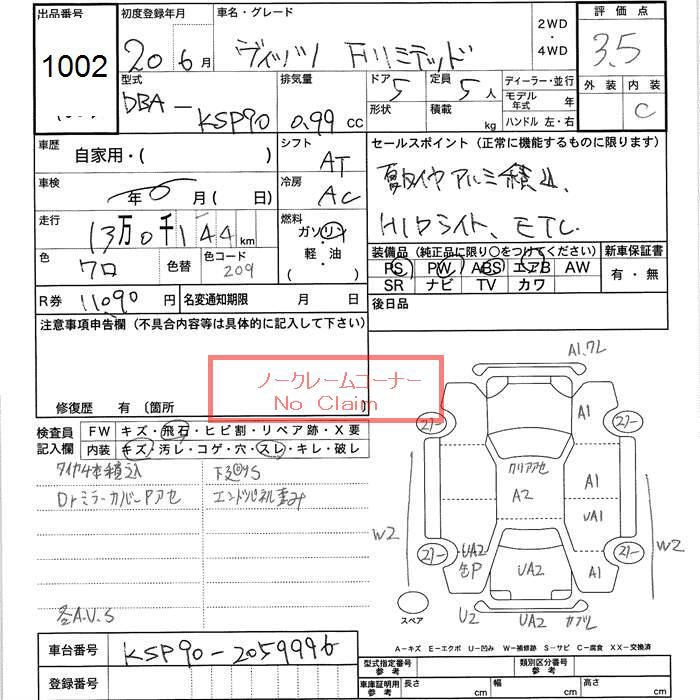 出品番号
1002
初度登録年月
20年6月
車名・グレード
ヴィッツ Fリミテッド
2WD
・
4WD
評価点
3.5
外装 内装
C
型式
DBA-
KSP90
排気量
0.99 cc
ドア 5
形状
定員 5 人
積載 kg
ディーラー・並行
モデル年式 年
ハンドル 左・右
車歴
自家用・( )
シフト
AT
車検
年 月 ( 日)
冷房
AC
走行
13万0千144 km
燃料
ガソリン
・
軽・油
( )
色
クロ
色替
色コード
209
R券 11090 円
名変通知期限 月 日
セールスポイント (正常に機能するものに限ります)
夏タイヤアルミ積込、
HIDライト、ETC
装備品 (純正品に限り○をつけてください)
PS PW ABS エアB AW
SR ナビ TV カワ
新車保証書
有・無
後日品
注意事項申告欄 (不具合内容等は具体的に記入して下さい)
修復歴 有 〔箇所
ノークレームコーナー
No Claim
検査員
記入欄
FW キズ・飛石・ヒビ割・リペア跡・X要
内装 キズ・汚レ・コゲ・穴・スレ・キレ・破レ
タイヤ4本積込
下廻りS
Drミラーカバー Pアセ
エンドパネル歪み
各A.U.S
A1,ワレ
A1
クリアアセ
A2
A1
UA1
W2
W2
UA2
色P
UA2
A1
スペア
U2
UA2
A-キズ E-エクボ U-凹み W-補修跡 S-サビ C-腐食 XX-交換済
車台番号
KSP90-2059996
登録番号
型式指定番号
参考
類別区分番号
参考
車庫証明用
参考
長さ cm
幅 cm
高さ cm